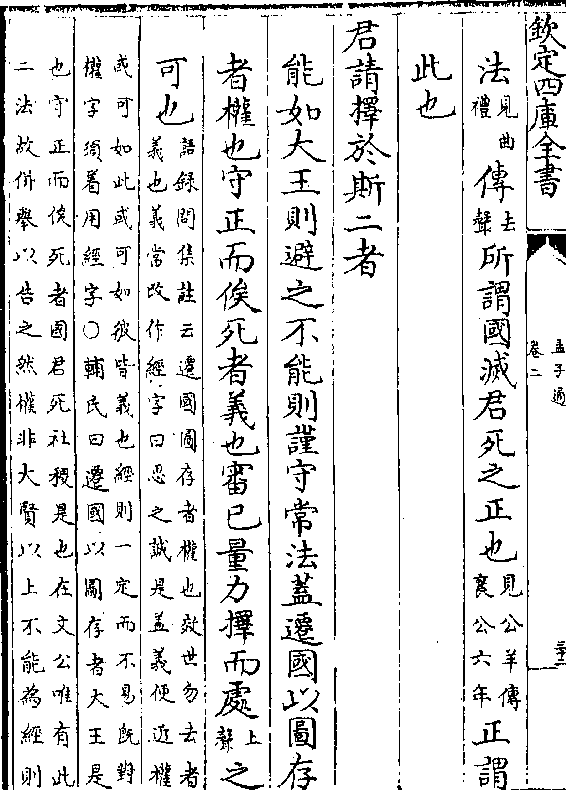 欽定四庫全書
孟子通
卷二
法見曲禮傳去聲所謂國滅君死之正也見公羊傳襄公六年正謂
此也
君請擇於斯二者
能如大王則避之不能則謹守常法蓋遷國以圖存
者權也守正而俟死者義也審己量力擇而處上聲之
可也語録問集註云遷國圖存者權也效世勿去者
義也義當改作經字曰思之誠是蓋義便近權
或可如此或可如彼皆義也經則一定而不易既對
權字須着用經字〇輔氏曰遷國以圖存者大王是
也守正而俟死者國君死社稷是也在文公唯有此
二法故併舉以告之然權非大賢以上不能為經則